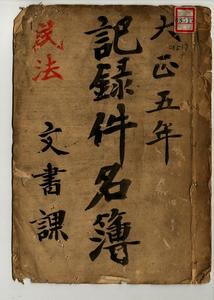 大正五年
記録件名簿
民法
文書課